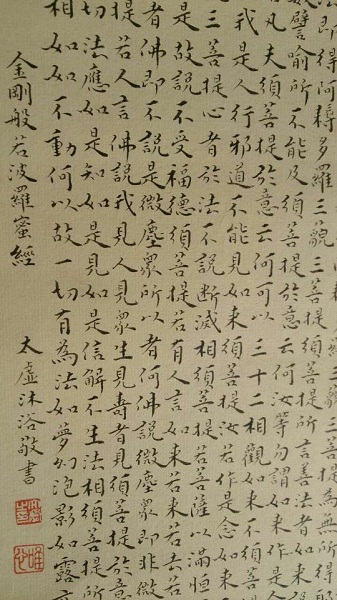 三藐三菩提為無所得
法即得阿耨多羅三藐三菩提須菩提所言善法者如來
譬喻所不能及須菩提於意云何汝等勿謂如來作是
凡夫須菩提於意云何可以三十二相觀如來不須
我是人行邪道不能見如來須菩提汝若作是念如來
三菩提心者於法不說斷滅相須菩提若菩薩以滿恒
是故說不受福德須菩提若有人言如來若來若去若
者佛即不說是微塵眾所以者何佛說微塵眾即非微
提若人言佛說我見人見眾生見壽者見須菩提於意
切法應如是知如是見如是信解不生法相須菩提所
相如如不動何以故一切有為法如夢幻泡影如露亦
金剛般若波羅蜜經
太虛沐浴敬書